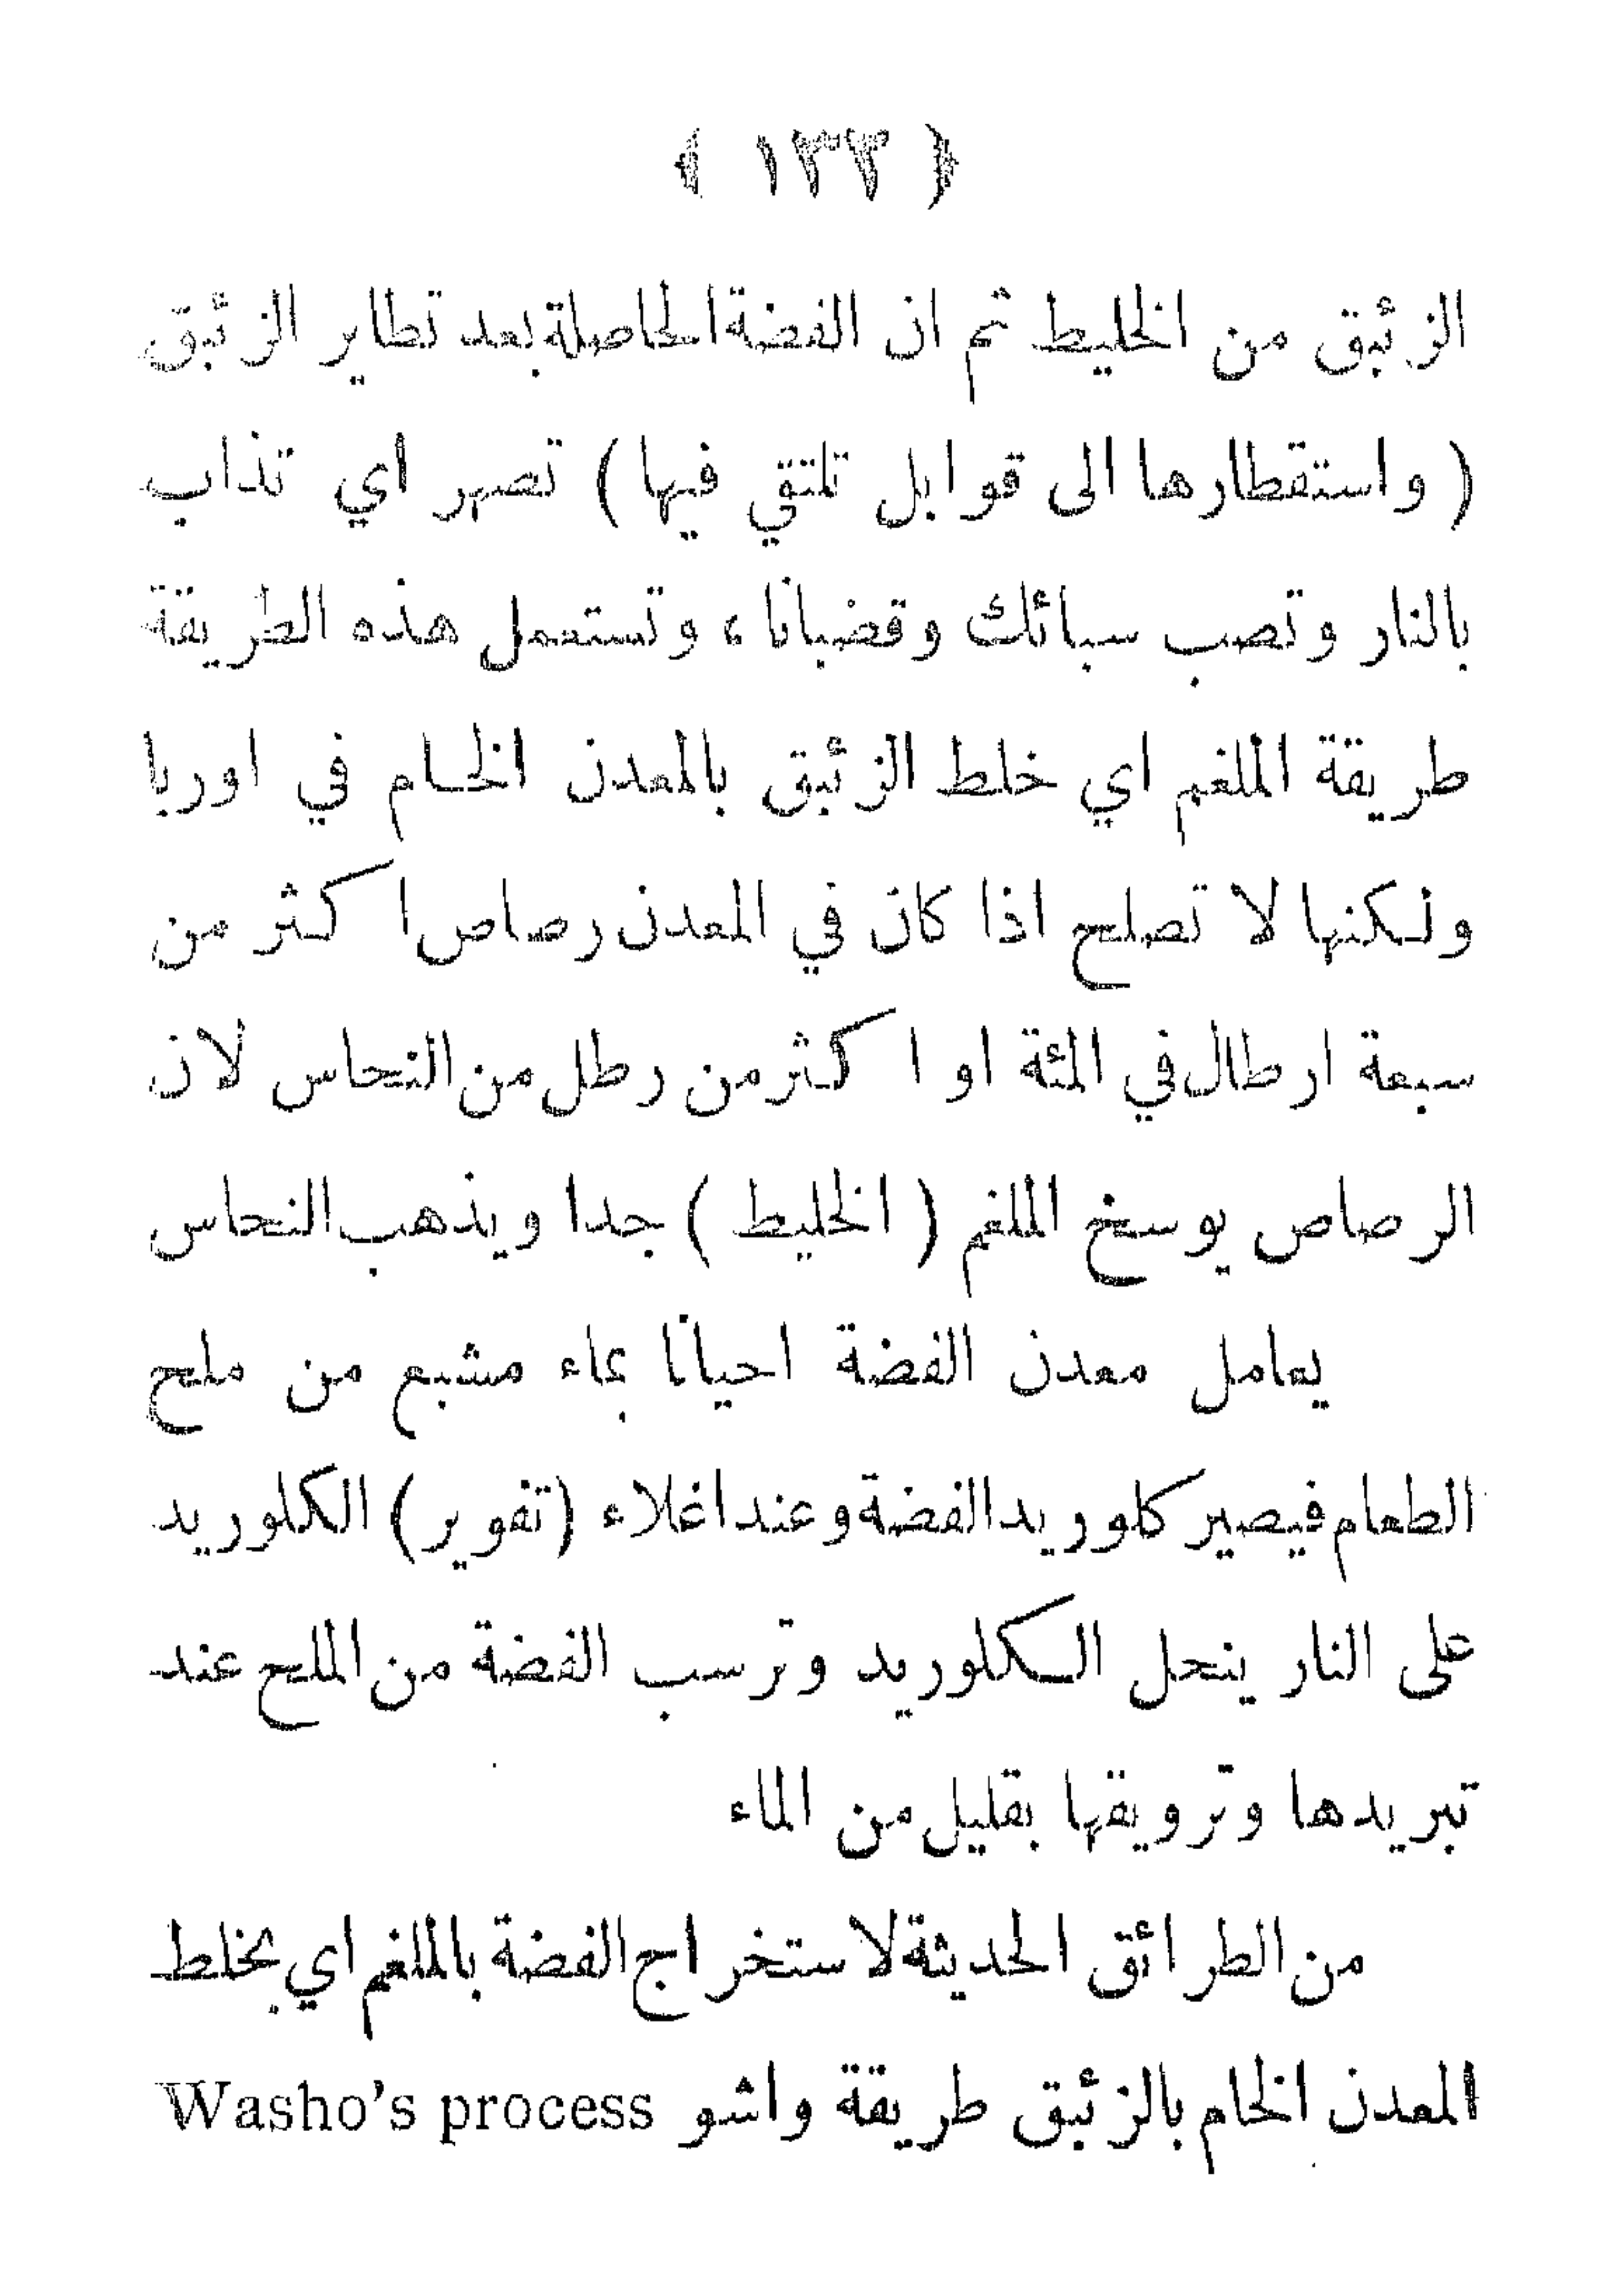 ﴿ ١٣٣ ﴾
الزئبق من الخليط ثم ان الفضة الحاصلة بعد تطاير الزئبق
( واستقطارها الى قوابل تلتقي فيها ) تصهر اي تذاب
بالنار وتصب سبائك وقضبانا ، وتستعمل هذه الطريقة
طريقة الملغم اي خلط الزئبق بالمعدن الخام في اوربا
ولكنها لا تصلح اذا كان في المعدن رصاص اكثر من
سبعة ارطال في المئة او اكثر من رطل من النحاس لان
الرصاص يوسخ الملغم ( الخليط ) جدا ويذهب النحاس
يعامل معدن الفضة احيانا بماء مشبع من ملح
الطعام فيصير كلوريد الفضة وعند اغلاء (تفوير) الكلوريد
على النار ينحل الكلوريد وترسب الفضة من الملح عند
تبريدها وترويقها بقليل من الماء
من الطرائق الحديثة لاستخراج الفضة بالملغم اي بخلط
المعدن الخام بالزئبق طريقة واشو Washo's process